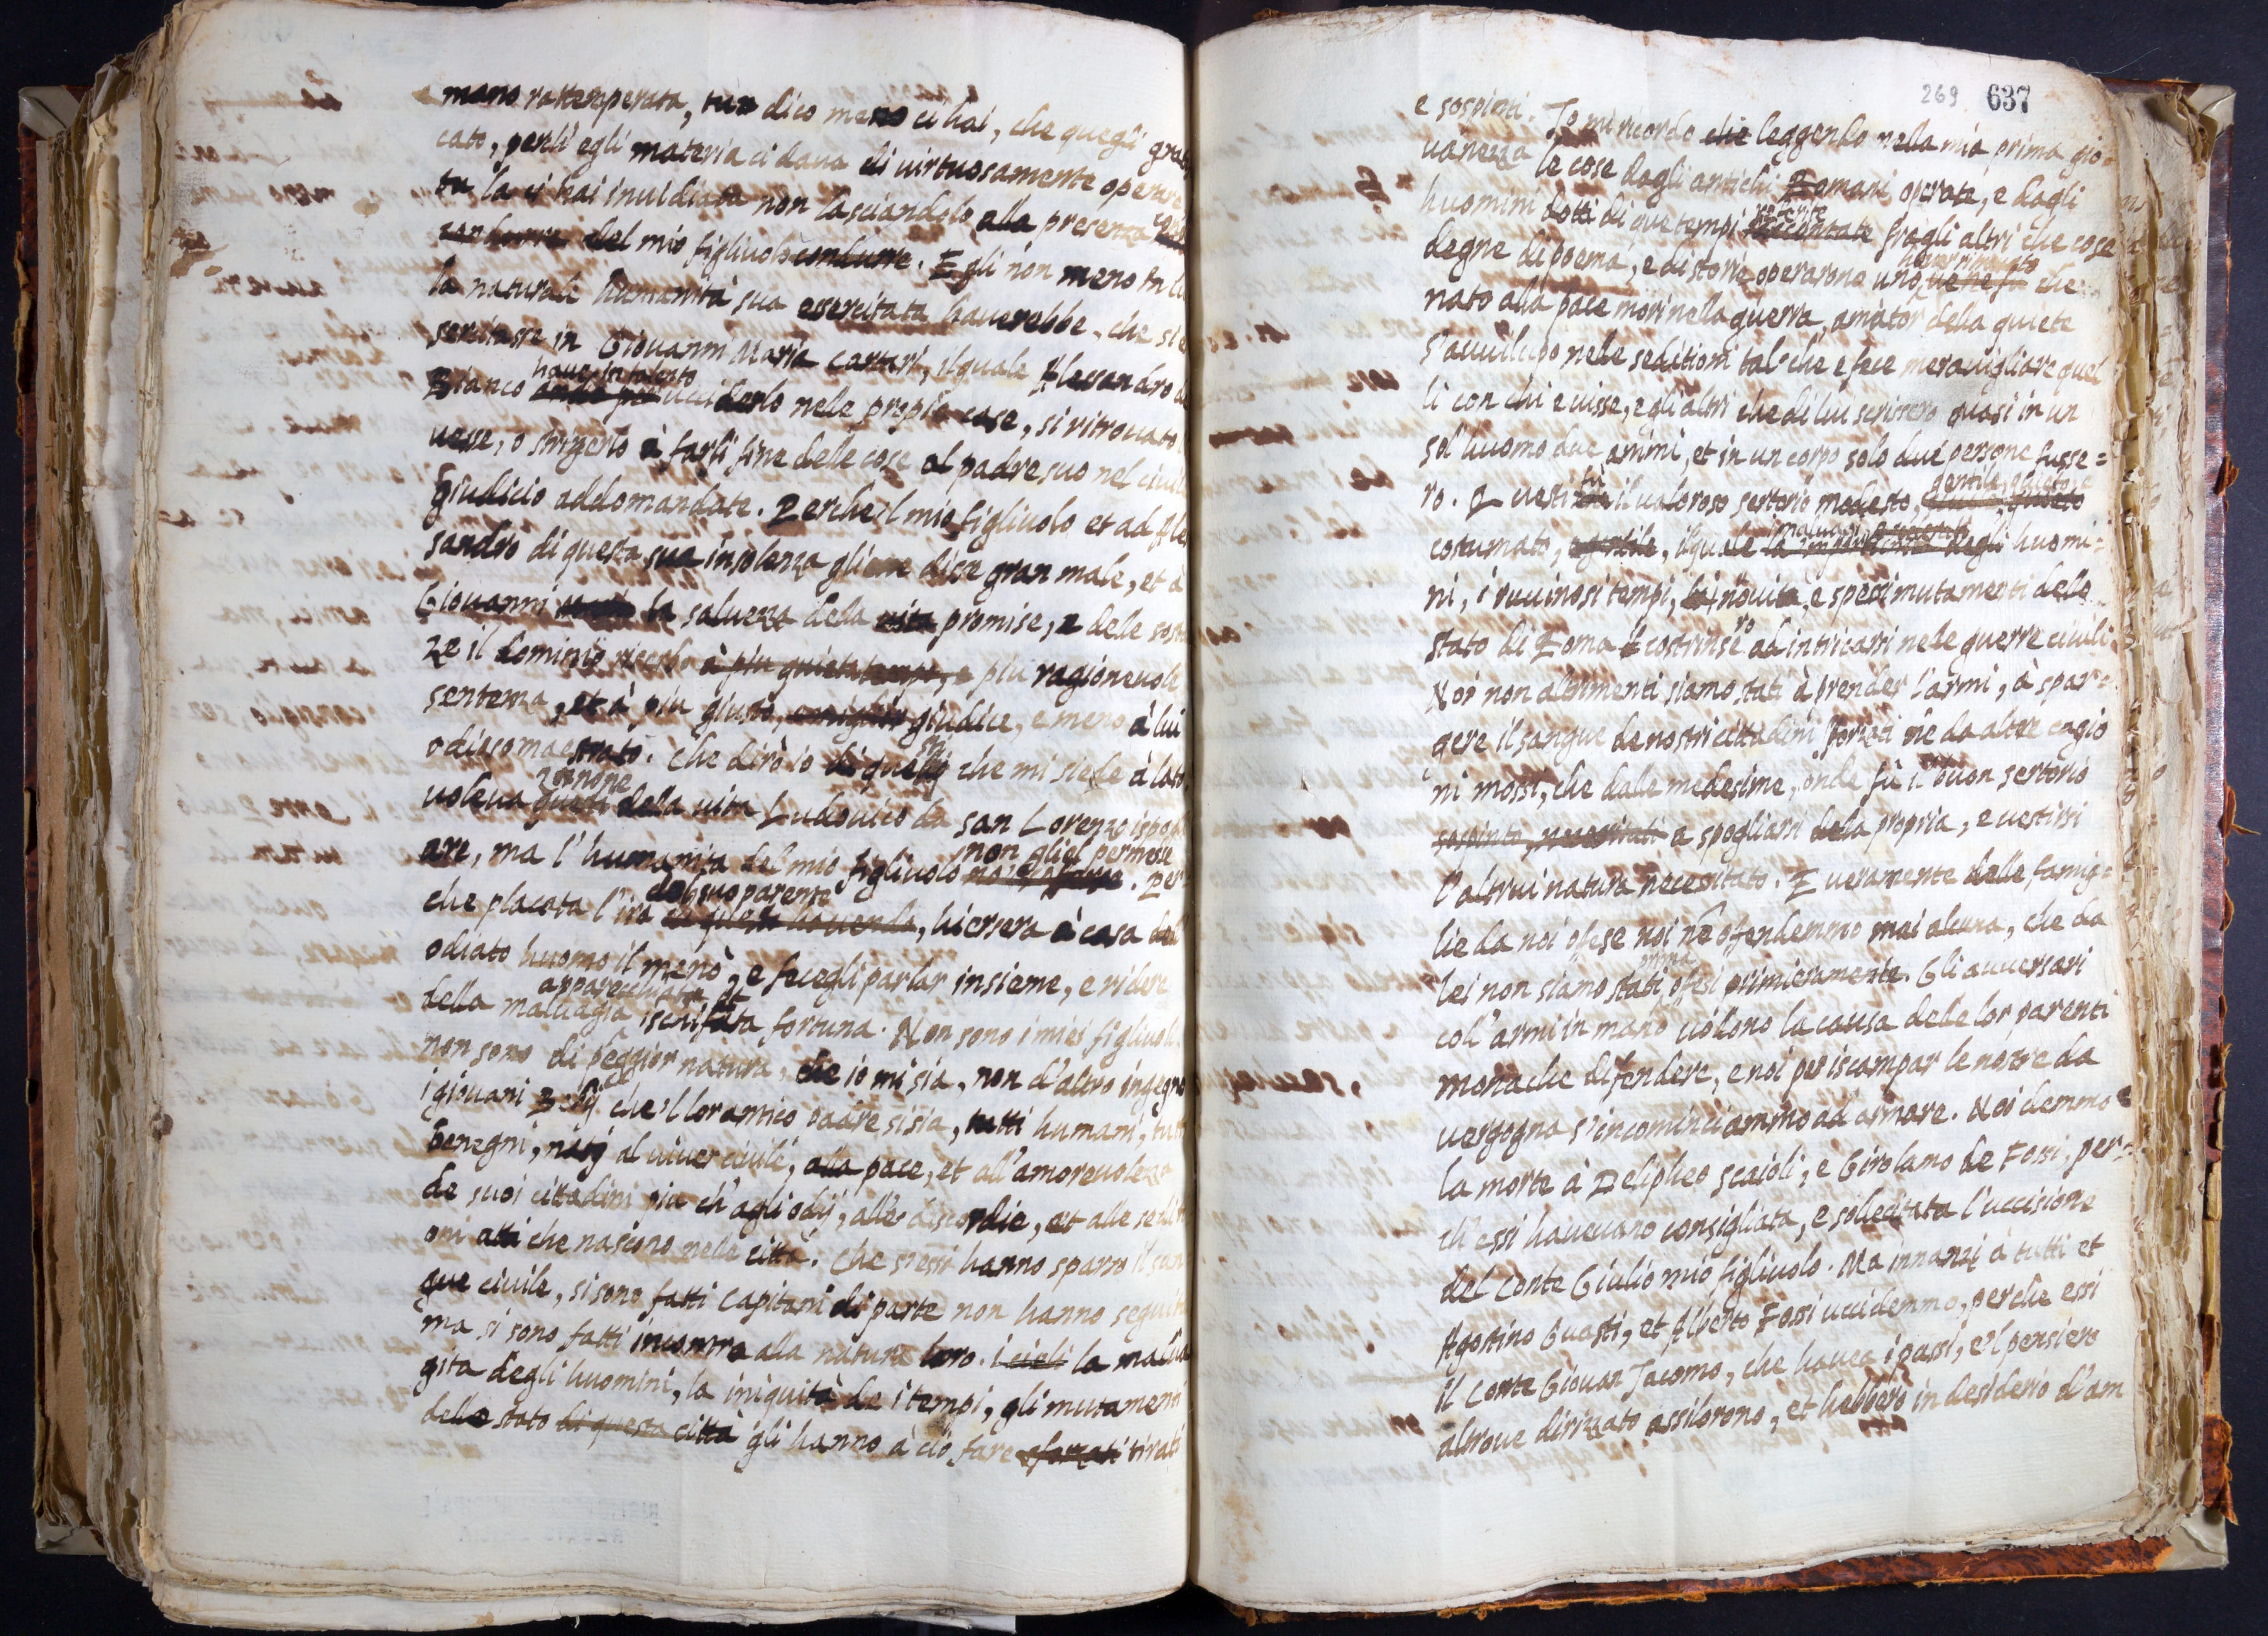 mano rattemperata, tu dico meno ci hai, che quegli gra
cato, perch'egli materia ci dava di virtuosamente operare
tu la ci hai invidiata non lasciandolo alla presenza
condurre del mio figliuolo condurre. Egli non meno in lu
la naturale humanità sua esercitata haverebbe, che si e
sercitasse in Giovanni Maria Cartari, ilquale Alessandro
have in talento
Bianco ucciderlo nele propie case, si ritrovato
vesse, o stringerlo à farli fine delle cose al padre suo nel civil
giudicio addomandate. Perche'l mio figliuolo et ad Ales
sandro di questa sua insolenza gliene disse gran male, et à
Giovanni la salvezza della vita promise, e delle sosta
ze il dominio à piu quieti tempi, e piu ragionevole
sentenza, et à piu giusto, e miglior giudice, e meno à lui
odioso maestrato. Che dirò io di che mi siede à lato
Zanone
voleva questi della vita Ludovico da san Lorenzo ispogl
non gliel permesse
are, ma l'humanità del mio figliuolo . Per
del suo parente
che placata l'ira di questi havendo, hiersera à casa del
odiato huomo il menò, e fecegli parlar insieme, e ridere
apparecchiata, et
della malvagia ischifata fortuna. Non sono i miei figliuoli
non sono di peggior natura, che io mi sia, non d'altro ingegno
i giovani che'l lor antico padre si sia, tutti humani, tutti
benegni, natij al viver civile, alla pace, et all'amorevolezza
de suoi cittadini piu ch'agli odij, alle discordie, et alle sediti
oni atti che nascono nele città. Che s'essi hanno sparso il san
gue civile, si sono fatti capitani di parte non hanno seguita
ma si sono fatti incontra alla natura loro. i cieli la malva
gita degli huomini, la iniquità de i tempi, gli mutamenti
dello stato di questa città gli hanno à ciò fare sforzati tirati
269 637
e sospinti. Io mi ricordo che leggendo nella mia prima gio-
vanezza le cose dagli antichi Romani operate, e dagli
referite
huomini dotti di que tempi raccontate fragli altri che cose
haver rimirato
degne di poema, e di storie operarono uno ve ne fu che
nato alla pace morì nella guerra, amator della quiete
s'avviluppò nele seditioni tal che e fece meravigliare quel
li con chi e visse, e gli altri che di lui scrissero quasi in un
sol huomo due animi, et in un corpo solo due persone fusse=
fù gentile, quieto, e
ro. Questi il valoroso sertorio modesto, quieto
malvagi
costumato, e gentile, ilquale degli huomi=
ni, i ruvinosi tempi, le novita, e spessi mutamenti dello
ro
stato di Roma il costrinse ad intricarsi nele guerre civili
Noi non altrimenti siamo stati à prender l'armi, à spar=
gere il sangue de nostri cittadini sforzati ne da altre cagio
ni mossi, che dalle medesime, onde fù il buon sertorio
sospinto, a spogliarsi dela propria, e vestirsi
l'altrui natura necessitato. E veramente delle famig=
lie da noi ofese noi ne ofendemmo mai alcuna, che da
prima
lei non siamo stati ofesi primieramente. Gli avversari
col'armi in mano vollono la causa dele lor parenti
monache difendere, e noi per iscampar le nostre da
vergogna s'incominciammo ad armare. Noi demmo
la morte à Delipheo scaioli, e Girolamo de Fossi, per=
ch'essi havevano consigliata, e sollecitata l'uccisione
del conte Giulio mio figliuolo. Ma innanzi à tutti et
Agostino Guasti, et Alberto Fossi uccidemmo, perche essi
il Conte Giovan Jacomo, che havea i passi, e'l pensiero
altrove dirizzato assilirono, et hebbero in desiderio d'am